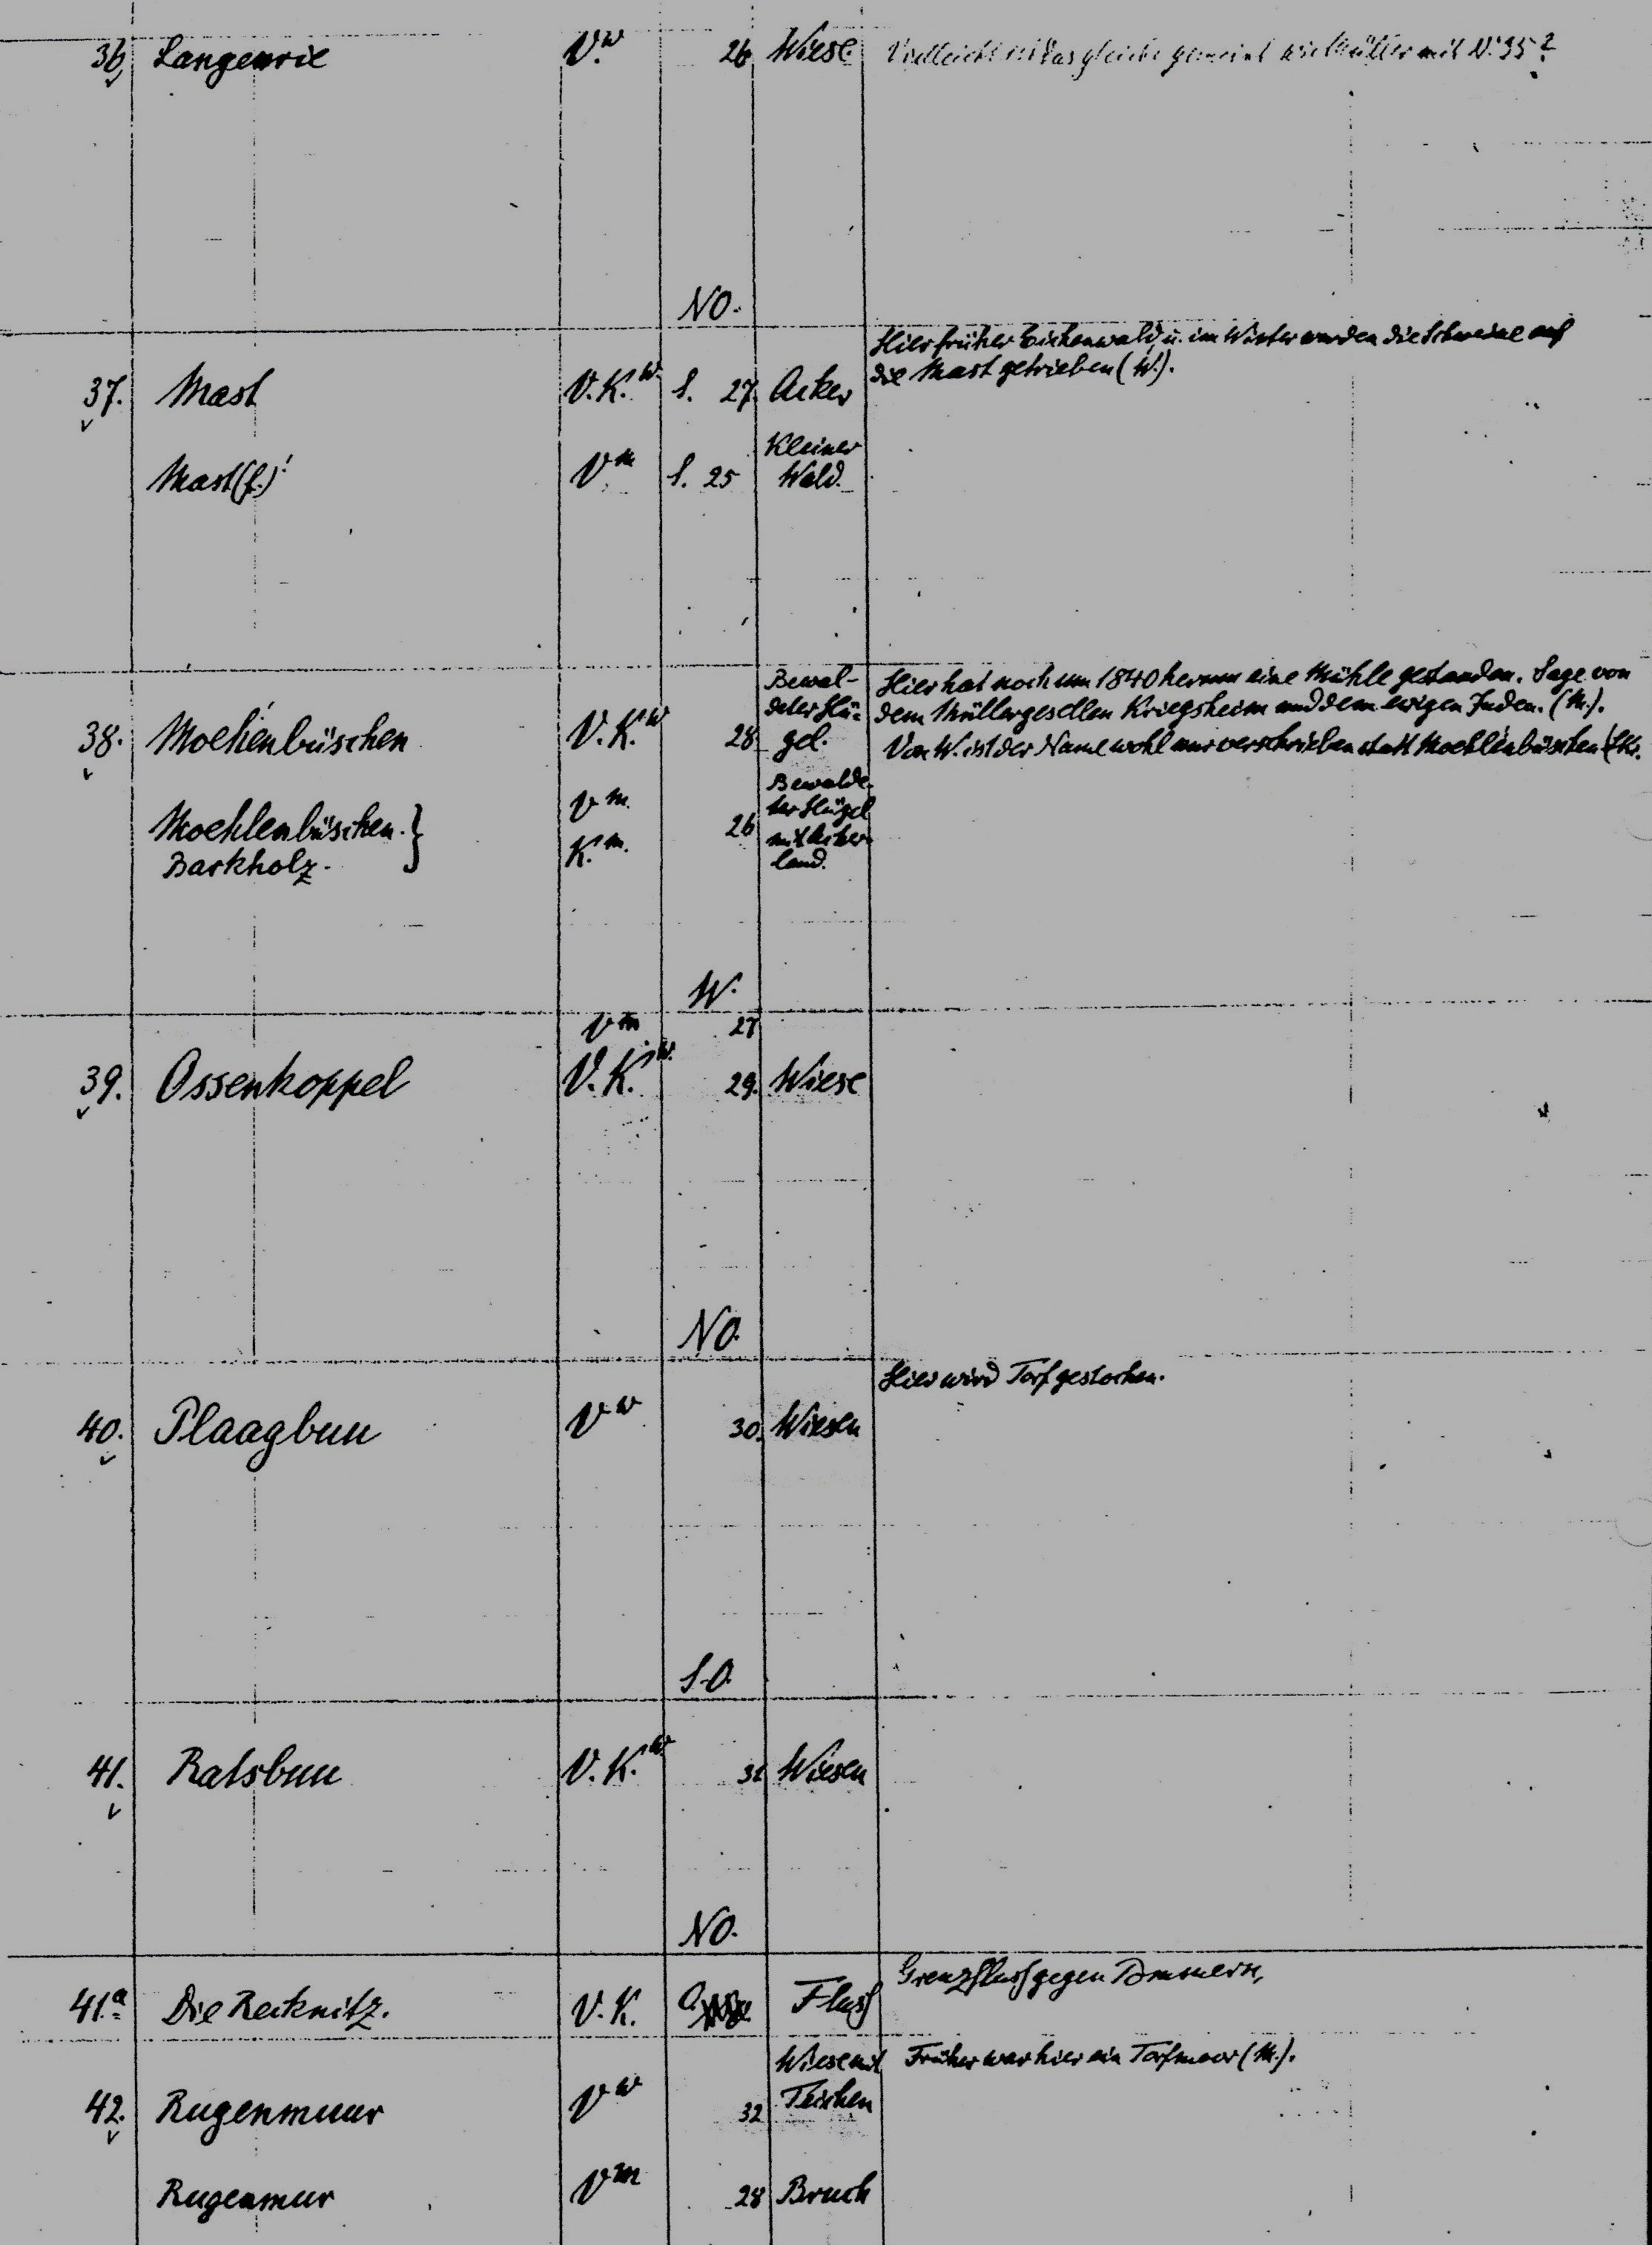 36. Langenrie V.W 26 Wiese Vielleicht ist das gleiche gemeint wie Müller mit N. 35?
NO.
Hier früher Eichenwald, u. im Winter wurden die Schweine auf
die Mast getrieben (W.).
37. Mast V.K.W. S. 27. Acker
Mast (f.)! V.M S. 25 Kleiner
Wald.
Bewal-
deter Hü-
gel.
Hier hat noch um 1840 herum eine Mühle gestanden. Sage von
dem Müllergesellen Kriegsheim und dem ewigen Juden. (M.).
38. Moehenbüschen V.K.W 28
Von W. ist der Name wohl nur verschrieben statt Moehlenbüschen
Moehlenbüschen. } V.M.
Barkholz. K.M.
26
Bewalde-
ter Hügel
mit Acker-
land.
W.
V.M 27
39. Ossenkoppel V.K.W. 29. Wiese
NO.
Hier wird Torf gestochen.
40. Plaagbuu V.W 30. Wiesen
S.O.
41. Ratsbuu V.K.W. 31 Wiesen
NO.
Grenzfluß gegen Pommern,
41.a Die Recknitz. V.K. O. Fluß
Wiese mit
Teichen
Früher war hier ein Torfmoor (M.).
42. Rugenmuur V.W 32
Rugenmur V.M 28 Bruch